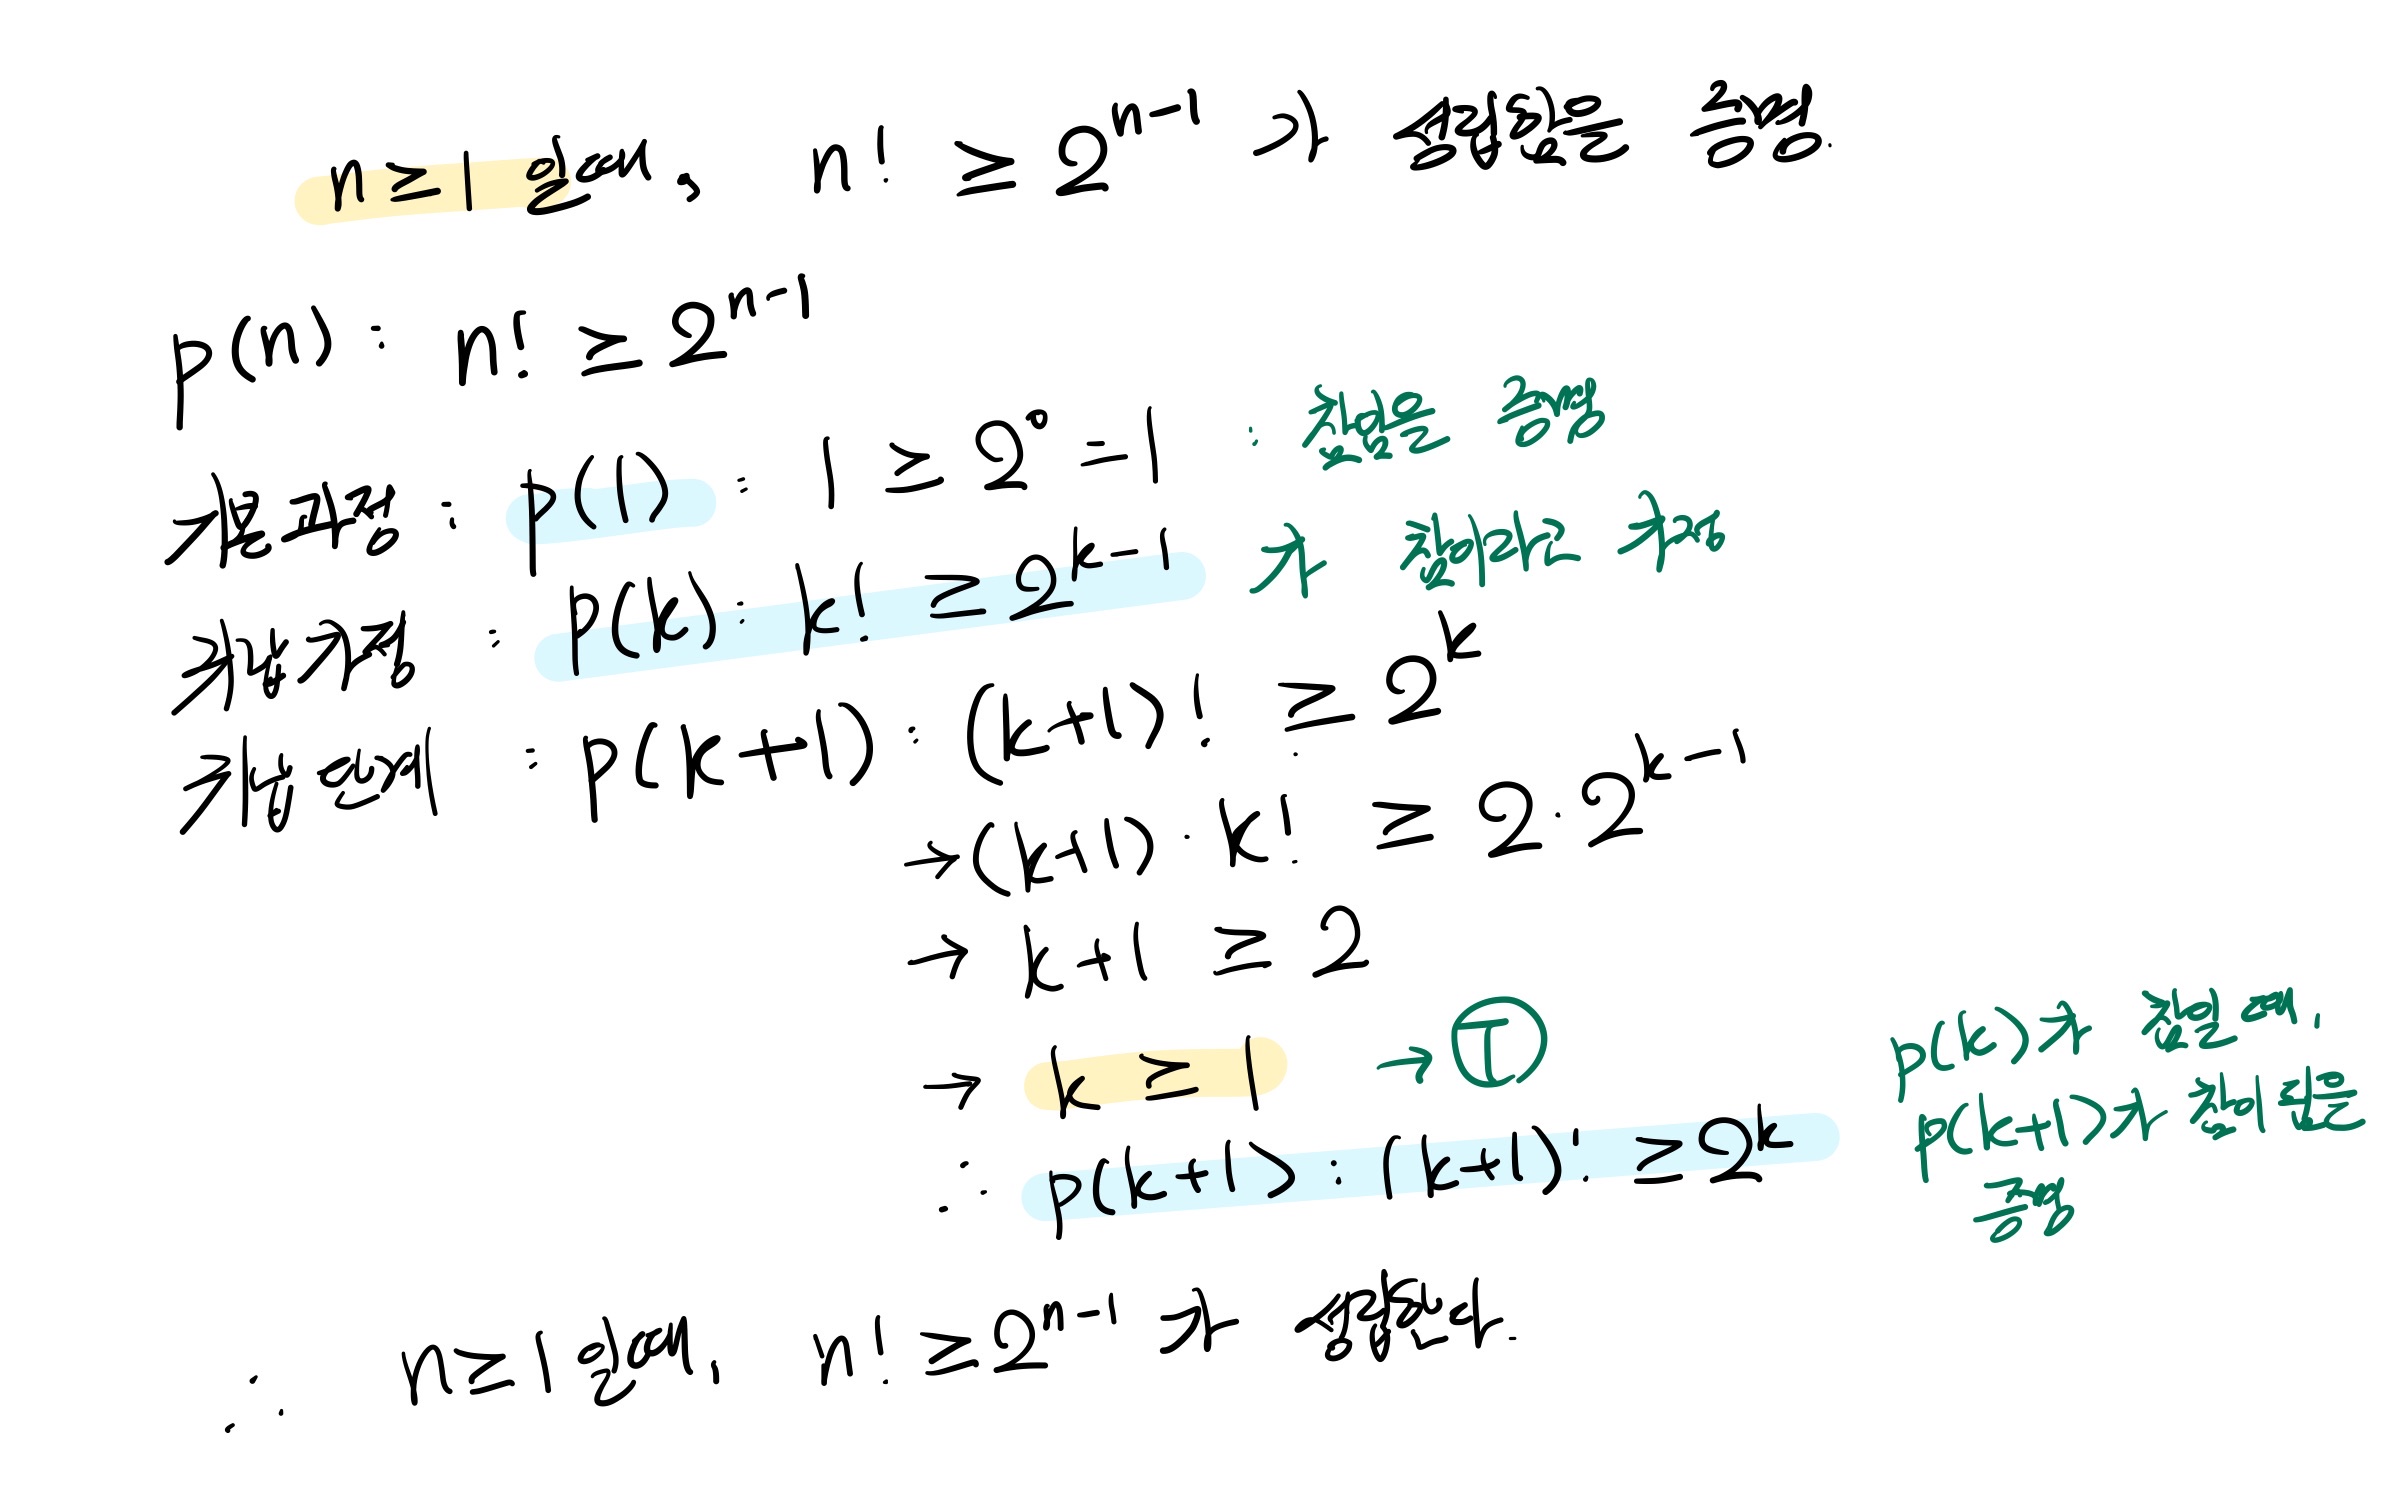 n ≥ 1 일 때, n! ≥ 2^{n-1} 가 성립함을 증명.
p(n) : n! ≥ 2^{n-1}
기본과정 : p(1) : 1 ≥ 2^0 = 1 : 참임을 증명
귀납가정 : p(k) : k! ≥ 2^{k-1} 가 참이라 가정
귀납단계 : p(k+1) : (k+1)! ≥ 2^k
→ (k+1) · k! ≥ 2 · 2^{k-1}
→ k+1 ≥ 2
→ k ≥ 1 → Ⓣ
p(k)가 참일 때,
∴ p(k+1) : (k+1)! ≥ 2^k
p(k+1)가 참임을
증명
∴ n ≥ 1 일 때, n! ≥ 2^{n-1} 가 성립한다.